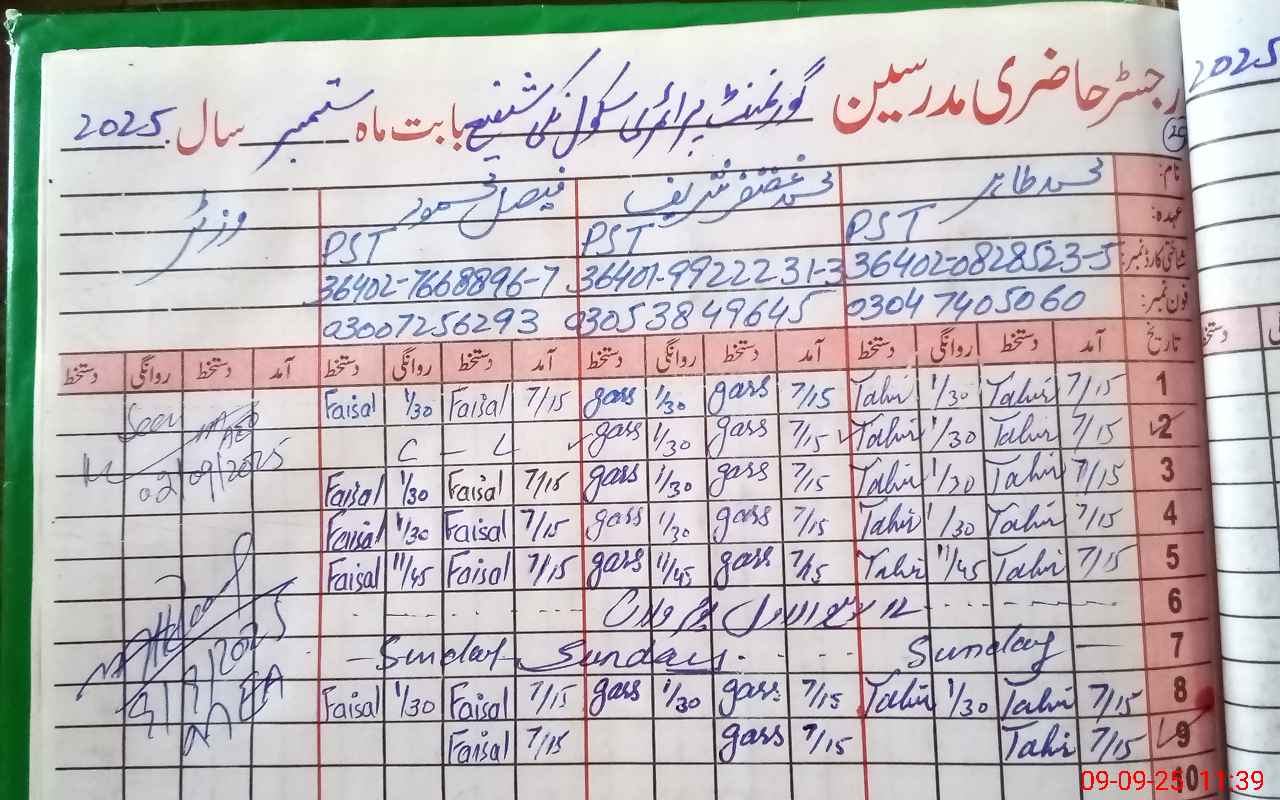 رجسٹر حاضری مدرسین گورنمنٹ پرائمری سکول شفیع بابت ماہ ستمبر سال 2025
2025
نام: محمد طاہر محمد غضنفر شریف فیصل محمود وزٹر
عہدہ: PST PST PST
شناختی کارڈ نمبر: 36402-0828523-5 36401-9922231-3 36402-7668896-7
فون نمبر: 03047405060 03053849645 03007256293
تاریخ آمد دستخط روانگی دستخط آمد دستخط روانگی دستخط آمد دستخط روانگی دستخط آمد دستخط روانگی دستخط
1 7/15 Tahir 1/30 Tahir 7/15 gass 1/30 gass 7/15 Faisal 1/30 Faisal
2 7/15 Tahir 1/30 Tahir 7/15 gass 1/30 gass C - L
3 7/15 Tahir 1/30 Tahir 7/15 gass 1/30 gass 7/15 Faisal 1/30 Faisal
4 7/15 Tahir 1/30 Tahir 7/15 gass 1/30 gass 7/15 Faisal 1/30 Faisal
5 7/15 Tahir 11/45 Tahir 7/15 gass 11/45 gass 7/15 Faisal 11/45 Faisal
6 12 ربیع الاول یوم ولادت
7 Sunday Sunday Sunday
8 7/15 Tahir 1/30 Tahir 7/15 gass 1/30 gass 7/15 Faisal 1/30 Faisal
9 7/15 Tahir 7/15 gass 7/15 Faisal
10
Seen
AEO
02/09/2025
9/9/2025
MEA
09-09-25 11:39